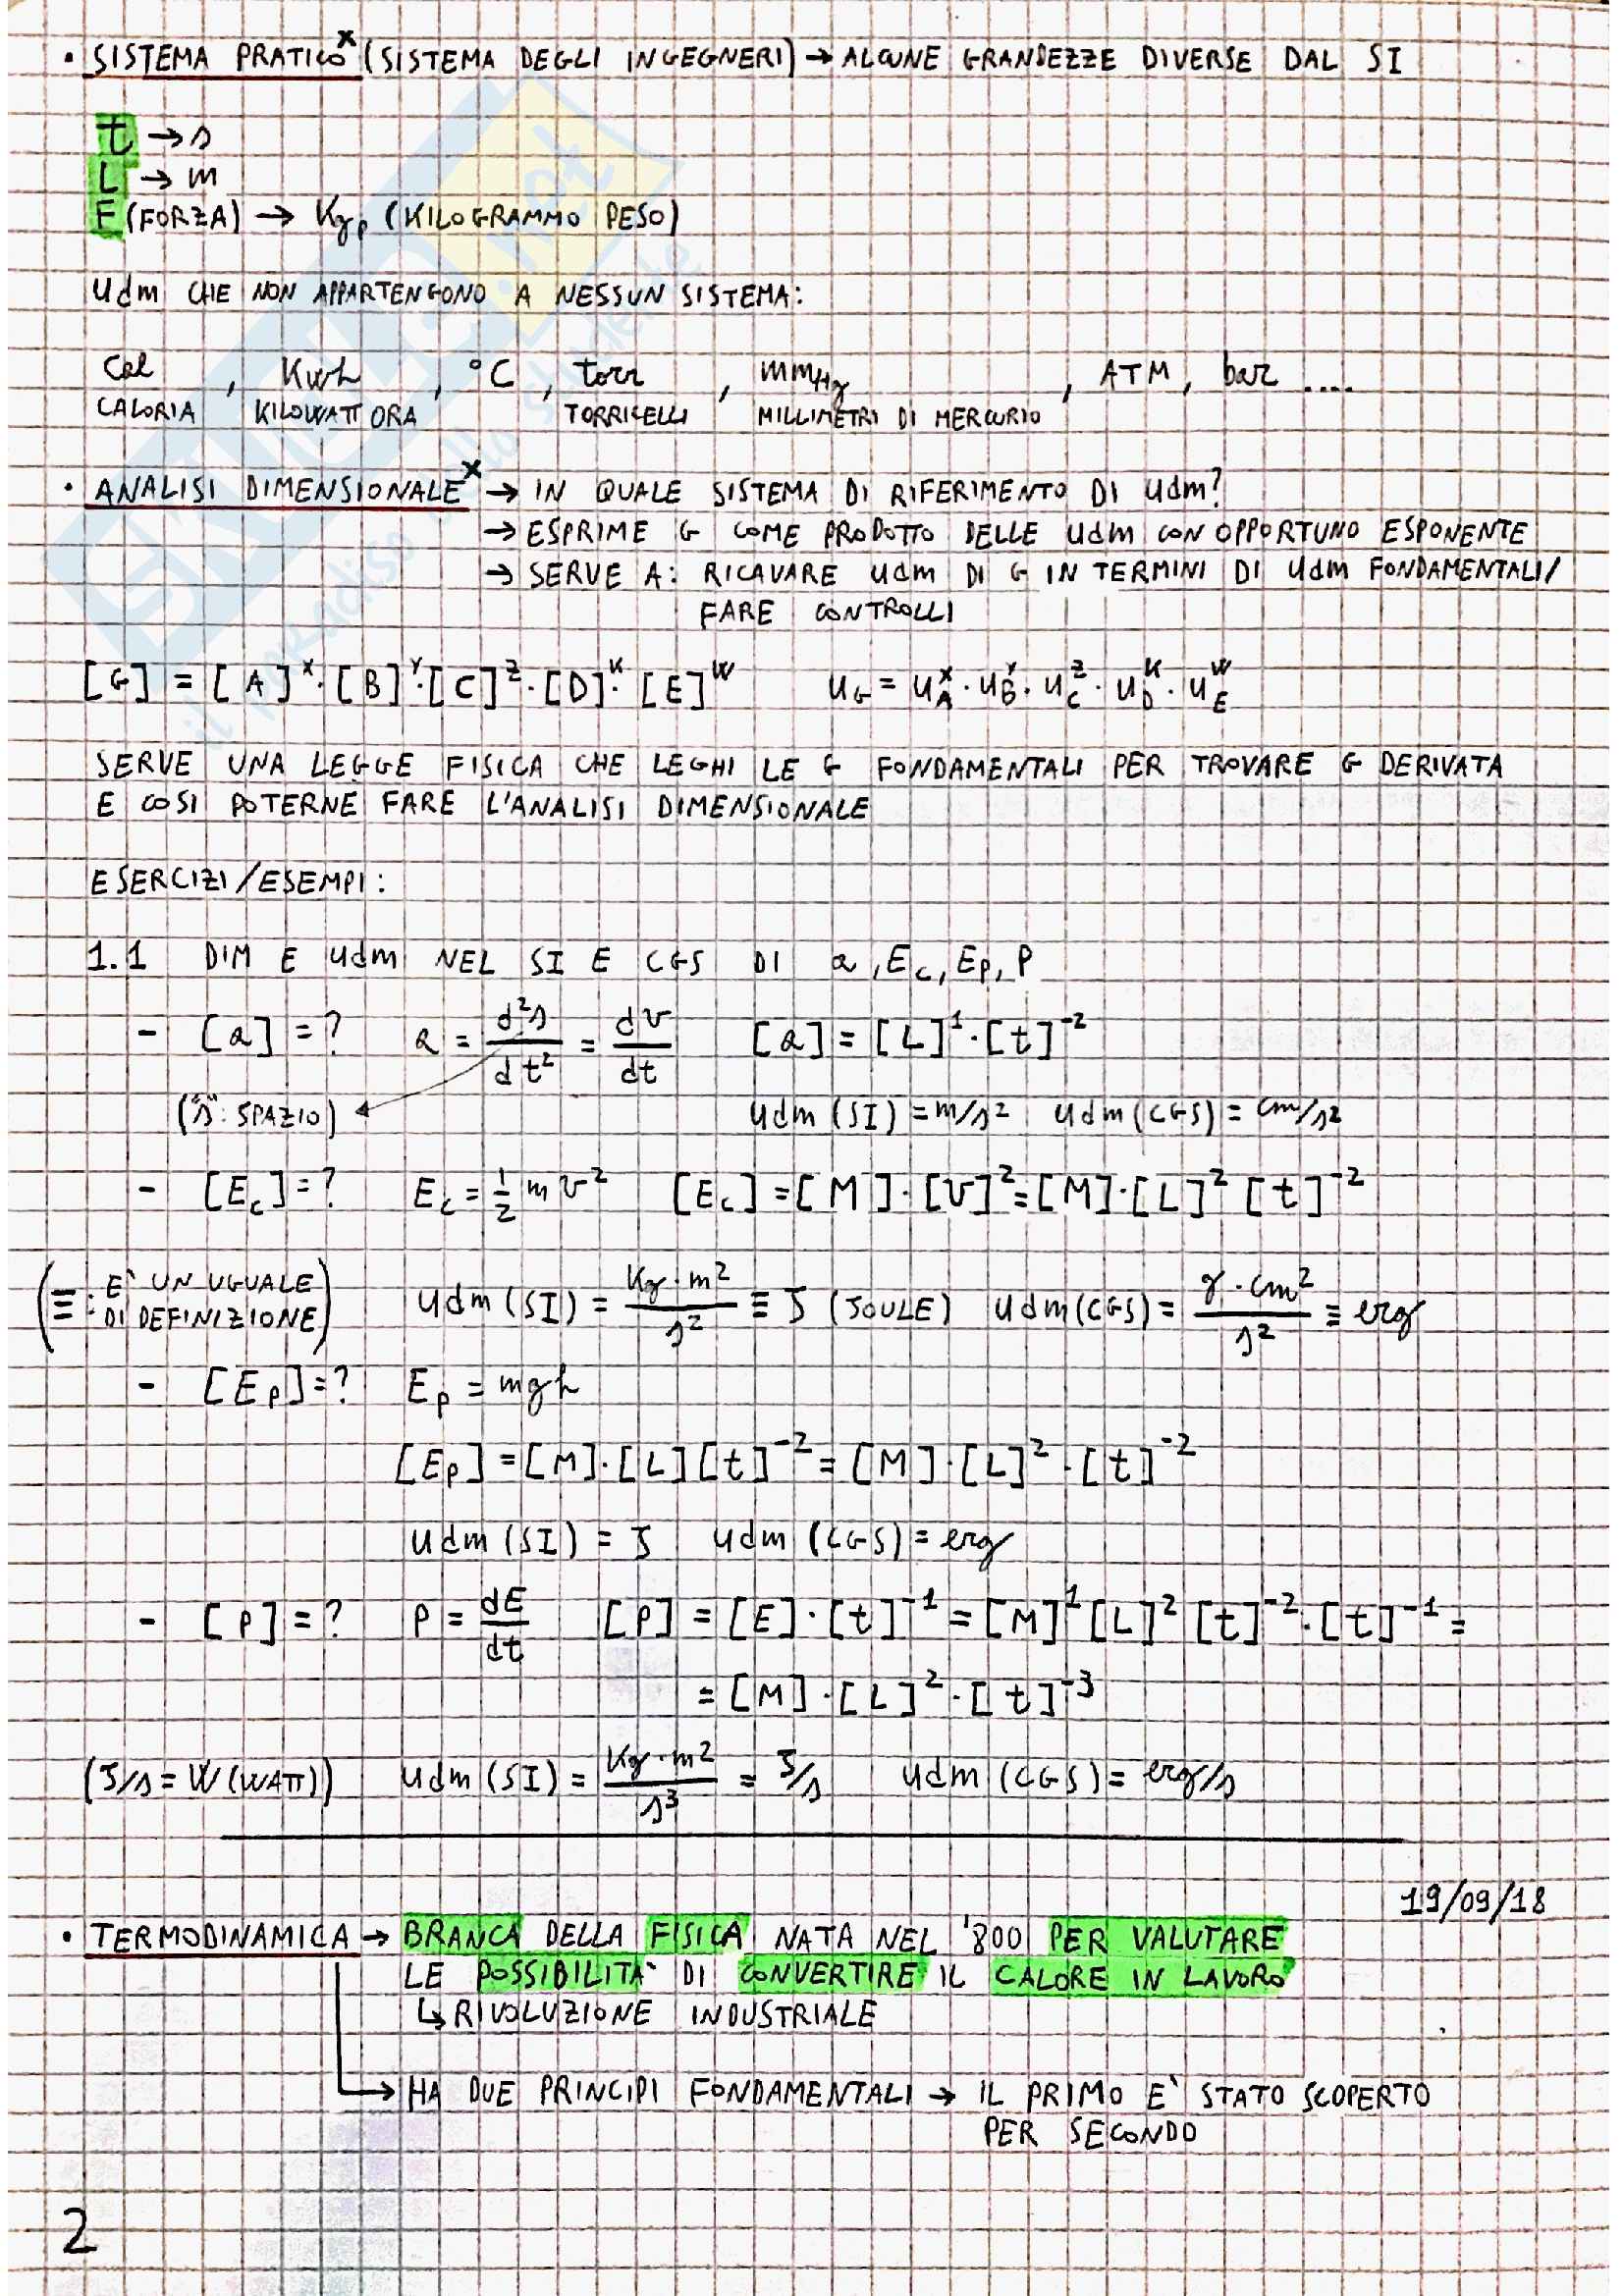 • SISTEMA PRATICO^x (SISTEMA DEGLI INGEGNERI) → ALCUNE GRANDEZZE DIVERSE DAL SI
t → s
L → m
F (FORZA) → Kg_p (KILOGRAMMO PESO)
udm CHE NON APPARTENGONO A NESSUN SISTEMA:
Cal , Kwh , °C , torr , mmHg , ATM, bar ....
CALORIA KILOWATT ORA TORRICELLI MILLIMETRI DI MERCURIO
• ANALISI DIMENSIONALE^x → IN QUALE SISTEMA DI RIFERIMENTO DI udm?
→ ESPRIME G COME PRODOTTO DELLE udm CON OPPORTUNO ESPONENTE
→ SERVE A: RICAVARE udm DI G IN TERMINI DI udm FONDAMENTALI/
FARE CONTROLLI
[G] = [A]^x · [B]^y · [C]^z · [D]^k · [E]^w u_G = u_A^x · u_B^y · u_C^z · u_D^k · u_E^w
SERVE UNA LEGGE FISICA CHE LEGHI LE G FONDAMENTALI PER TROVARE G DERIVATA
E COSI POTERNE FARE L'ANALISI DIMENSIONALE
ESERCIZI/ESEMPI:
1.1 DIM E udm NEL SI E CGS DI a, E_c, E_p, P
- [a] = ? a = d²s/dt² = dv/dt [a] = [L]^1 · [t]^-2
("s": SPAZIO) udm (SI) = m/s² udm (CGS) = cm/s²
- [E_c] = ? E_c = 1/2 m v² [E_c] = [M] · [v]² = [M] · [L]² [t]^-2
(≡: E' UN UGUALE DI DEFINIZIONE) udm (SI) = Kg · m²/s² ≡ J (JOULE) udm (CGS) = g · cm²/s² ≡ erg
- [E_p] = ? E_p = mgh
[E_p] = [M] · [L] [t]^-2 = [M] · [L]² · [t]^-2
udm (SI) = J udm (CGS) = erg
- [P] = ? P = dE/dt [P] = [E] · [t]^-1 = [M]^1 [L]² [t]^-2 · [t]^-1 =
= [M] · [L]² · [t]^-3
(J/s = W (WATT)) udm (SI) = Kg · m²/s³ = J/s udm (CGS) = erg/s
19/09/18
• TERMODINAMICA → BRANCA DELLA FISICA NATA NEL '800 PER VALUTARE
LE POSSIBILITA' DI CONVERTIRE IL CALORE IN LAVORO
↳ RIVOLUZIONE INDUSTRIALE
→ HA DUE PRINCIPI FONDAMENTALI → IL PRIMO E' STATO SCOPERTO
PER SECONDO
2
SKUOLA.net
il paradiso dello studente